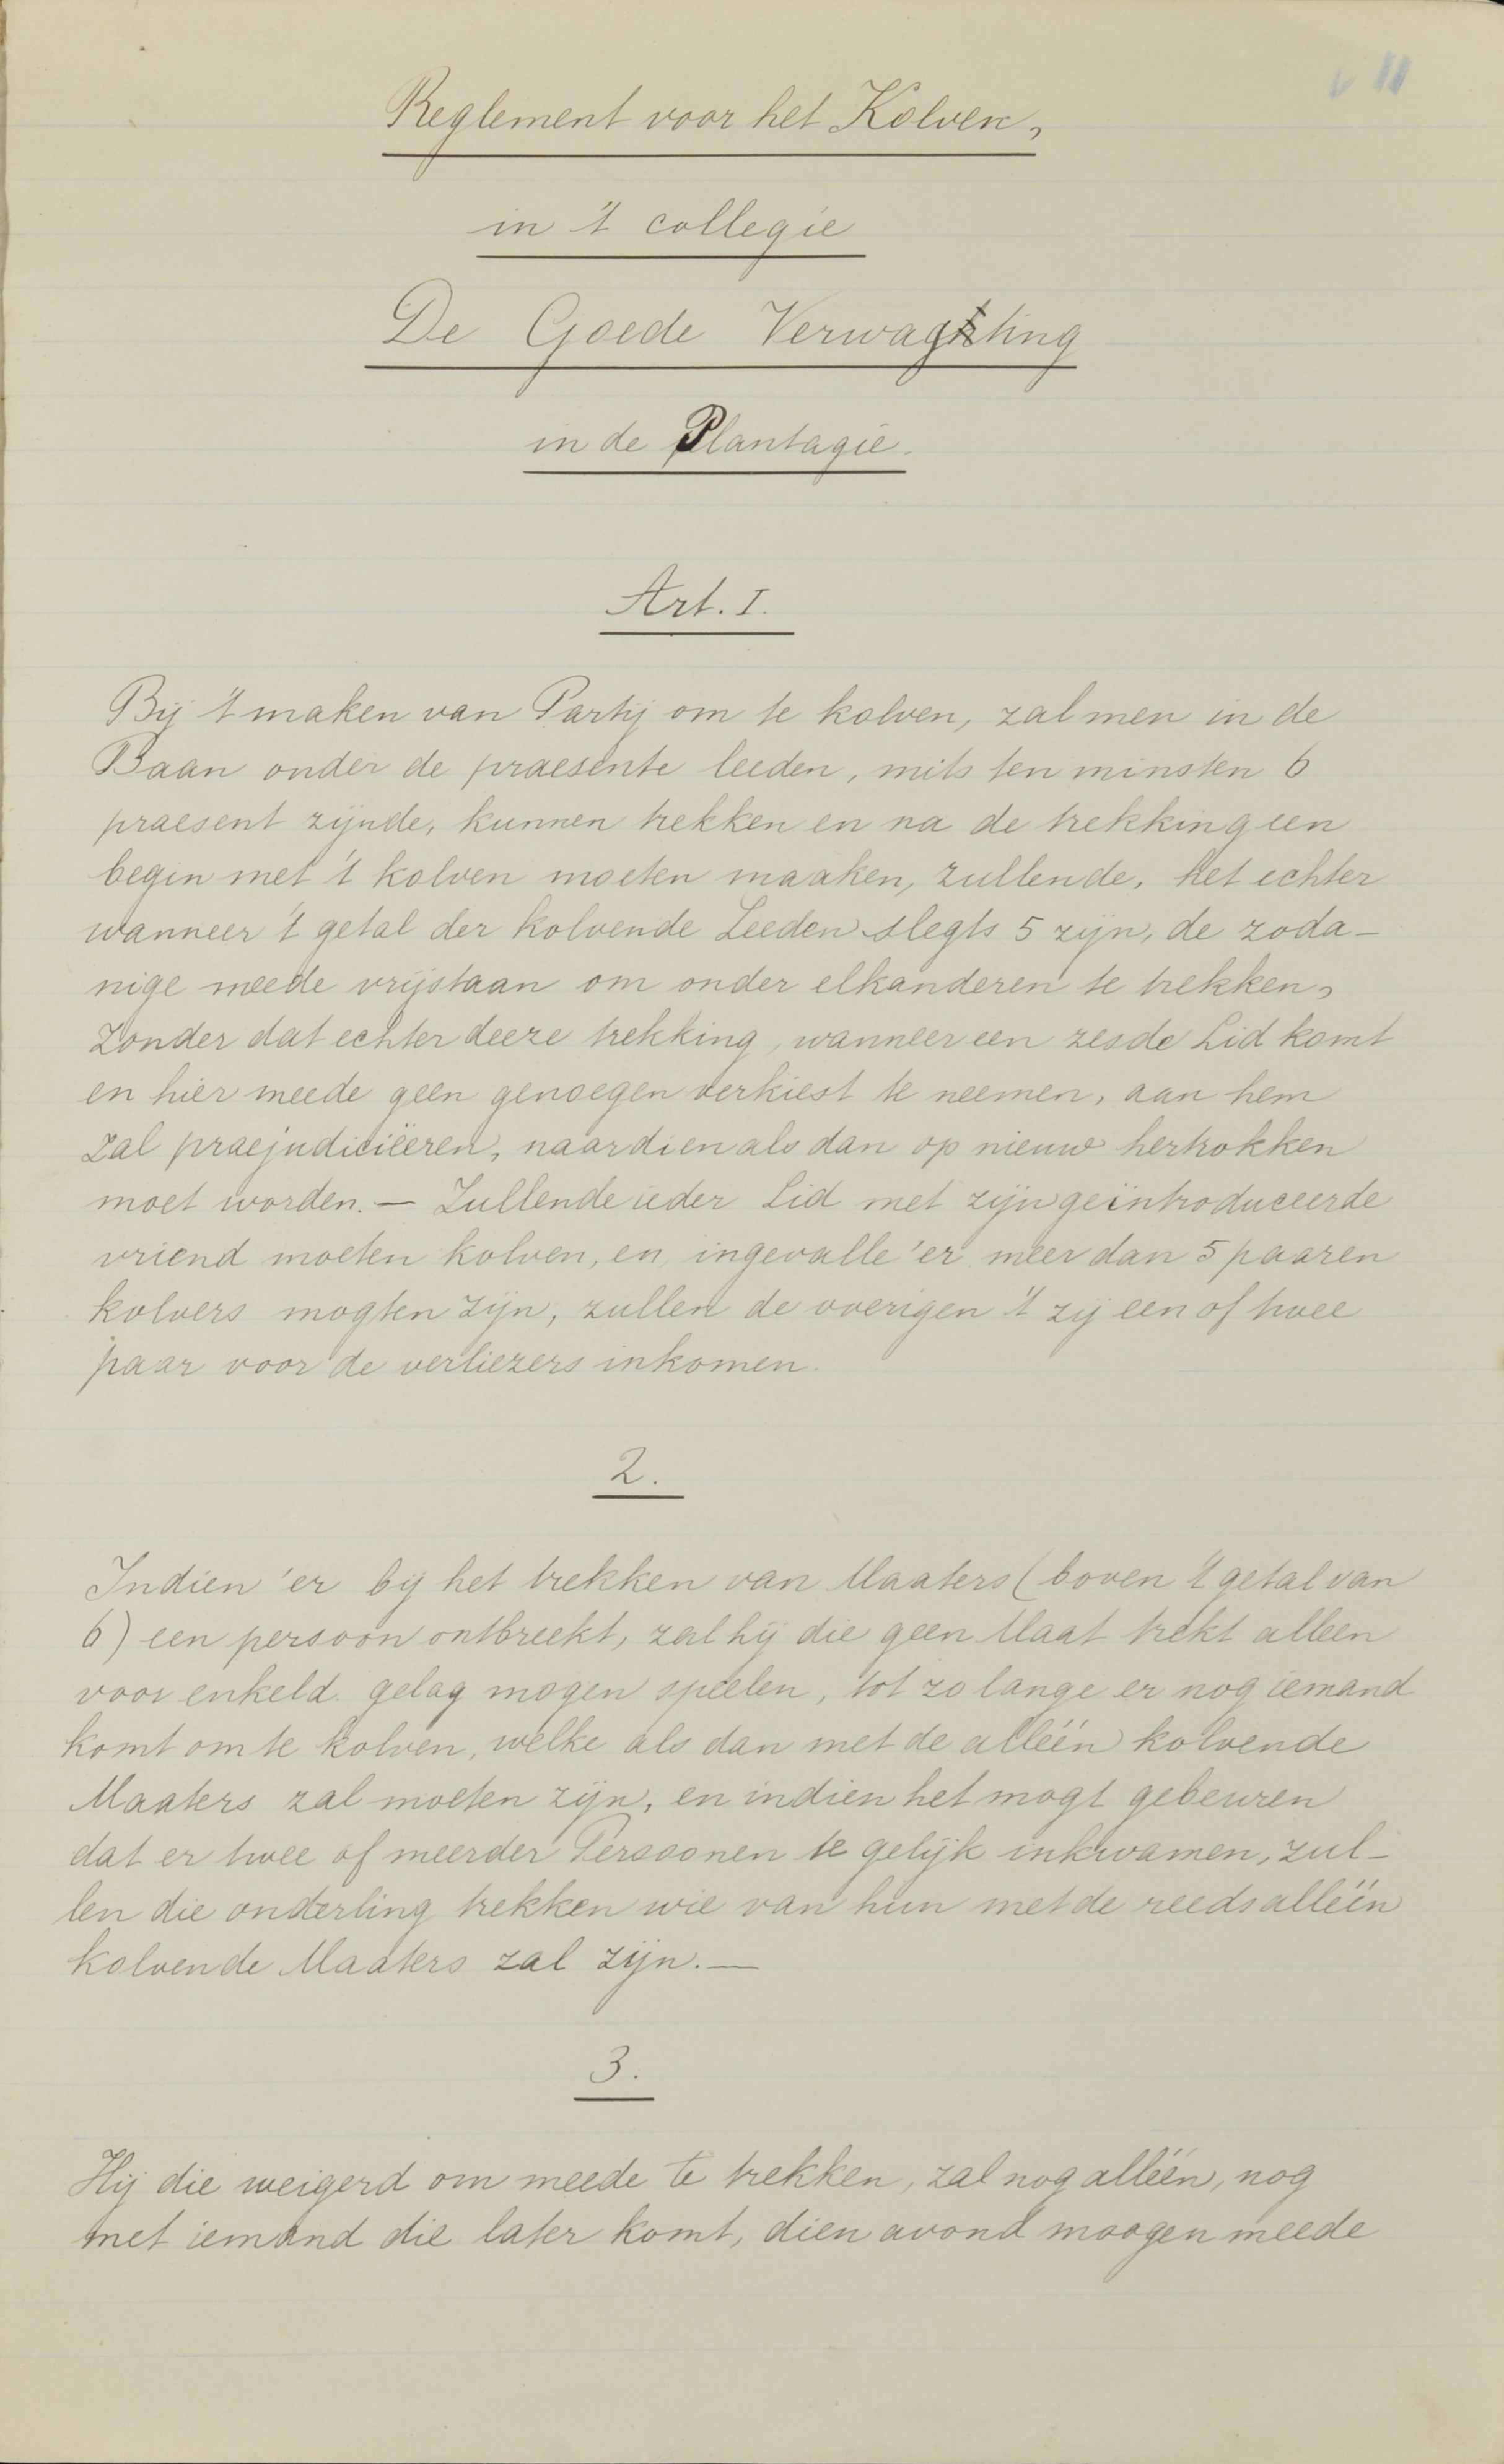 v 11
Reglement voor het Kolven,
in 't collegie
De Goede Verwagting
in de Plantagie.
Art. I.
Bij 't maken van Partij om te kolven, zal men in de
Baan onder de praesente leeden, mits ten minsten 6
praesent zijnde, kunnen trekken en na de trekking een
begin met 't kolven moeten maaken, zullende, het echter
wanneer 't getal der kolvende Leeden slegts 5 zijn, de zoda-
nige meede vrijstaan om onder elkanderen te trekken,
Zonder dat echter deeze trekking, wanneer een zesde Lid komt
en hier meede geen genoegen verkiest te neemen, aan hem
zal praejudiciëeren, naardien als dan op nieuw hertrokken
moet worden. — Zullende ieder Lid met zijn geïntroduceerde
vriend moeten kolven, en, ingevalle 'er meer dan 5 paaren
kolvers mogten zijn, zullen de overigen 't zij een of twee
paar voor de verliezers inkomen.
2.
Indien 'er bij het trekken van Maaters (boven 't getal van
6) een persoon ontbreekt, zal hij die geen Maat trekt alleen
voor enkeld gelag mogen speelen, tot zo lange er nog iemand
komt om te kolven, welke als dan met de alléén kolvende
Maaters zal moeten zijn, en indien het mogt gebeuren
dat er twee of meerder Persoonen te gelijk inkwamen, zul-
len die onderling trekken wie van hun met de reeds alléén
kolvende Maaters zal zijn. —
3.
Hij die weigerd om meede te trekken, zal nog alléén, nog
met iemand die later komt, dien avond moogen meede